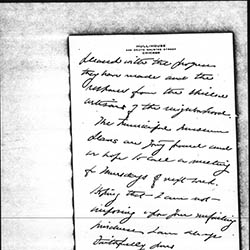 HULL-HOUSE
CHICAGO
pleased with the progress
they have made and the
response from the
artisans of the neighborhood.
The Municipal Museum
plans are going forward and
we hope to call a meeting
for Thursday of next week.
Hoping that I am not
imposing your unfailing
kindness I am always
Faithfully yours